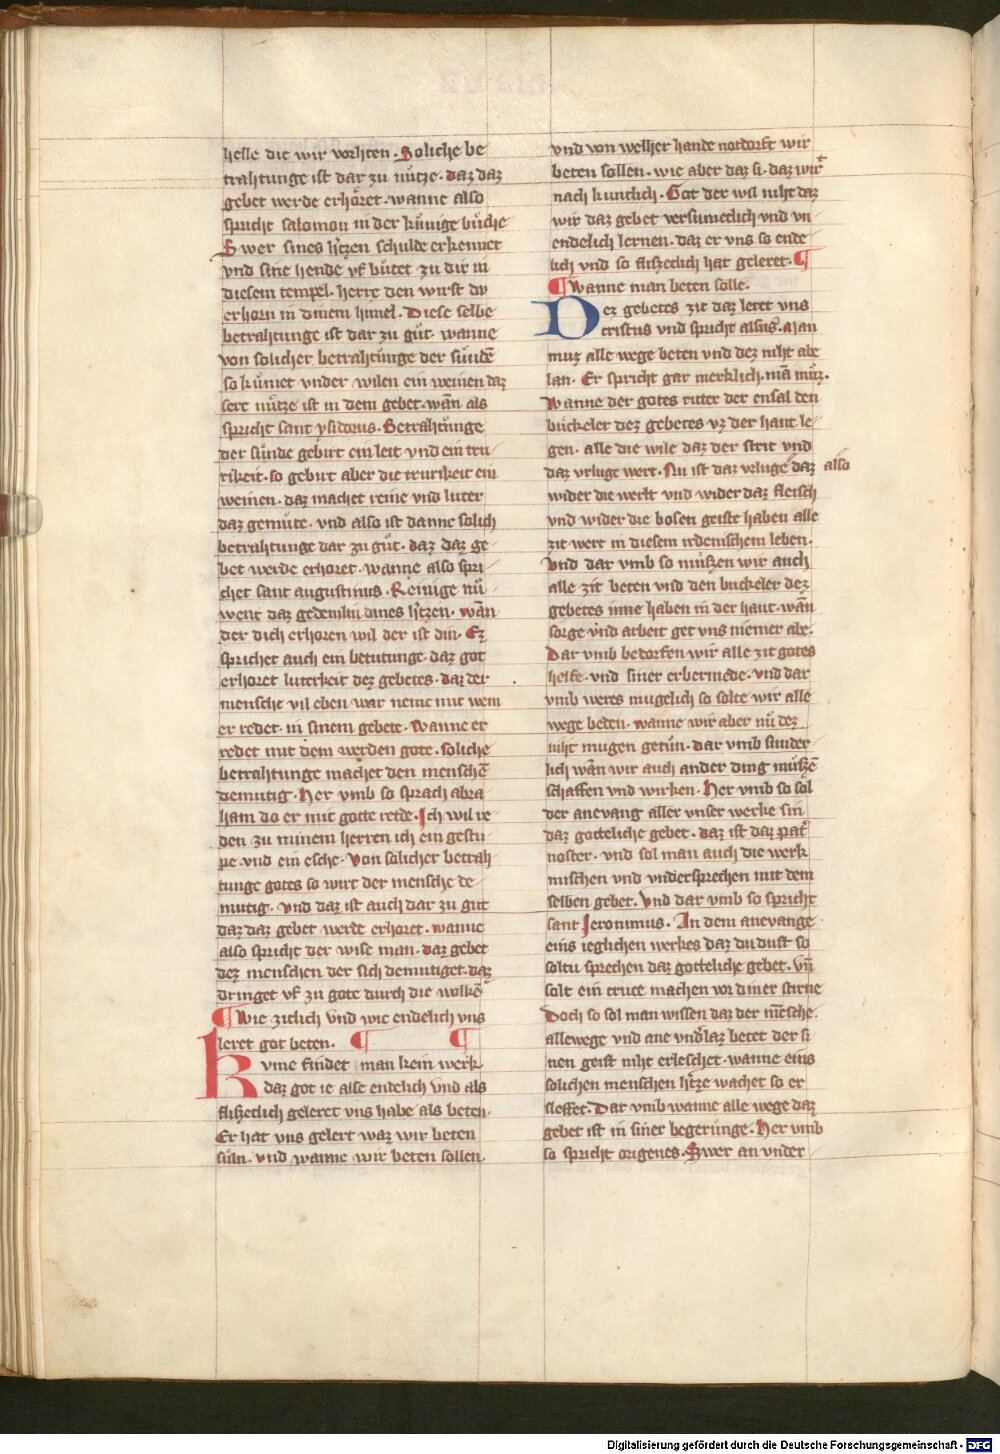 helle die wir vorhten. Soliche be
trahtunge ist dar zu nuͤtze. daz daz
gebet werde erhoͤret. wanne also
spricht salomon in der kuͤnige buͤche
Swer sines hꝛ̄tzen schulde erkennet
vnd sine hende vf buͤtet zu dir in
diesem tempel. herre den wirst dv
erhorn in dinem himel. Diese selbe
betrahtunge ist dar zu guͤt. wanne
von solicher betrahtuͤnge der suͤndē
so kuͤmet vnder wilen ein weinen daz
sere nuͤtze ist in dem gebet. wān als
spricht sant ysidorus. Betrahtuͤnge
der suͤnde gebirt ein leit vnd ein tru
rikeit. so gebirt aber die trurikeit ein
weinen. daz machet reine vnd luter
daz gemuͤte. vnd also ist danne solich
betrahtunge dar zu guͤt. daz daz ge
bet werde erhoret. wanne also spri
chet sant augustinus. Reinige nuͤ
went daz gedenkin dines hꝛ̄tzen. wān
der dich erhoren wil der ist din. Ez
sprichet auch ein betutunge. daz got
erhoret luterkeit dez gebetes. daz der
mensche vil eben war neme mit wem
er redet. in sinem gebete. Wanne er
redet mit dem werden gote. soliche
betrahtunge machet den menschē
demutig. Her vmb so sprach abra
ham do er mit gotte retde. Ich wil re
den zu minem herren ich ein gestu
pe. vnd ein esche. Von solicher betrah
tunge gotes so wirt der mensche de
mutig. vnd daz ist auch dar zu gut
daz daz gebet werde erhoret. wanne
also spricht der wise man. daz gebet
dez menschen der sich demutiget. daz
dringet vf zu gote durch die wolkē
¶ Wie zitlich vnd wie endelich vns
leret got beten. ¶ ¶
Kvme findet man kein werk
daz got ie alse endelich vnd als
flizzeclich geleret vns habe als beten.
Er hat vns gelert waz wir beten
suͤln. vnd wanne wir beten sollen.
vnd von welher hande notdorft wir
beten sollen. wie aber daz si. daz wirt
nach kuntlich. Got der wil niht daz
wir daz gebet versumeclich vnd vn
endelich lernen. daz er vns so ende
lich vnd so flizzeclich hat geleret. ¶
¶ Wanne man beten solle.
Dez gebetes zit daz leret vns
cristus vnd spricht alsus. Man
muz alle wege beten vnd dez niht abe
lan. Er spricht gar merklich. mā muͤz.
Wanne der gotes ritter der ensal den
buckeler dez gebetes vz der hant le
gen. alle die wile daz der strit vnd
daz vrluge wert. Nu ist daz vrluge daz also
wider die werlt vnd wider daz fleisch
vnd wider die bosen geiste haben alle
zit wert in diesem irdenischem leben.
Vnd dar vmb so muͤszen wir auch
alle zit beten vnd den buckeler dez
gebetes inne haben in der hant. wān
sorge vnd arbeit get vns niemer abe.
Dar vmb bedorfen wir alle zit gotes
helfe. vnd siner erbermede. vnd dar
vmb weres mugelich so solte wir alle
wege beden. wanne wir aber nuͤ dez
niht mugen getuͤn. dar vmb sunder
lich wān wir auch ander ding muͤszē
schaffen vnd wirken. Her vmb so sol
der anevang aller vnser werke sin
daz gotteliche gebet. daz ist daz pat̄
noster. vnd sol man auch die werk
mischen vnd vndersprechen mit dem
selben gebet. Vnd dar vmb so spricht
sant Jeronimus. An dem anevange
eins ieglichen werkes daz du dust so
soltu sprechen daz gotteliche gebet. vn̄
solt ein cruce machen vor diner stirne
Doch so sol man wissen daz der mēsche.
allewege vnd ane vnd̓laz betet der si
nen geist niht erleschet. wanne eins
solichen menschen hꝛ̄tze wachet so er
sleffet. Dar vmb wanne alle wege daz
gebet ist in siner begeruͤnge. Her vmb
so spricht origenes. Swer an vnder
Digitalisierung gefördert durch die Deutsche Forschungsgemeinschaft - DFG